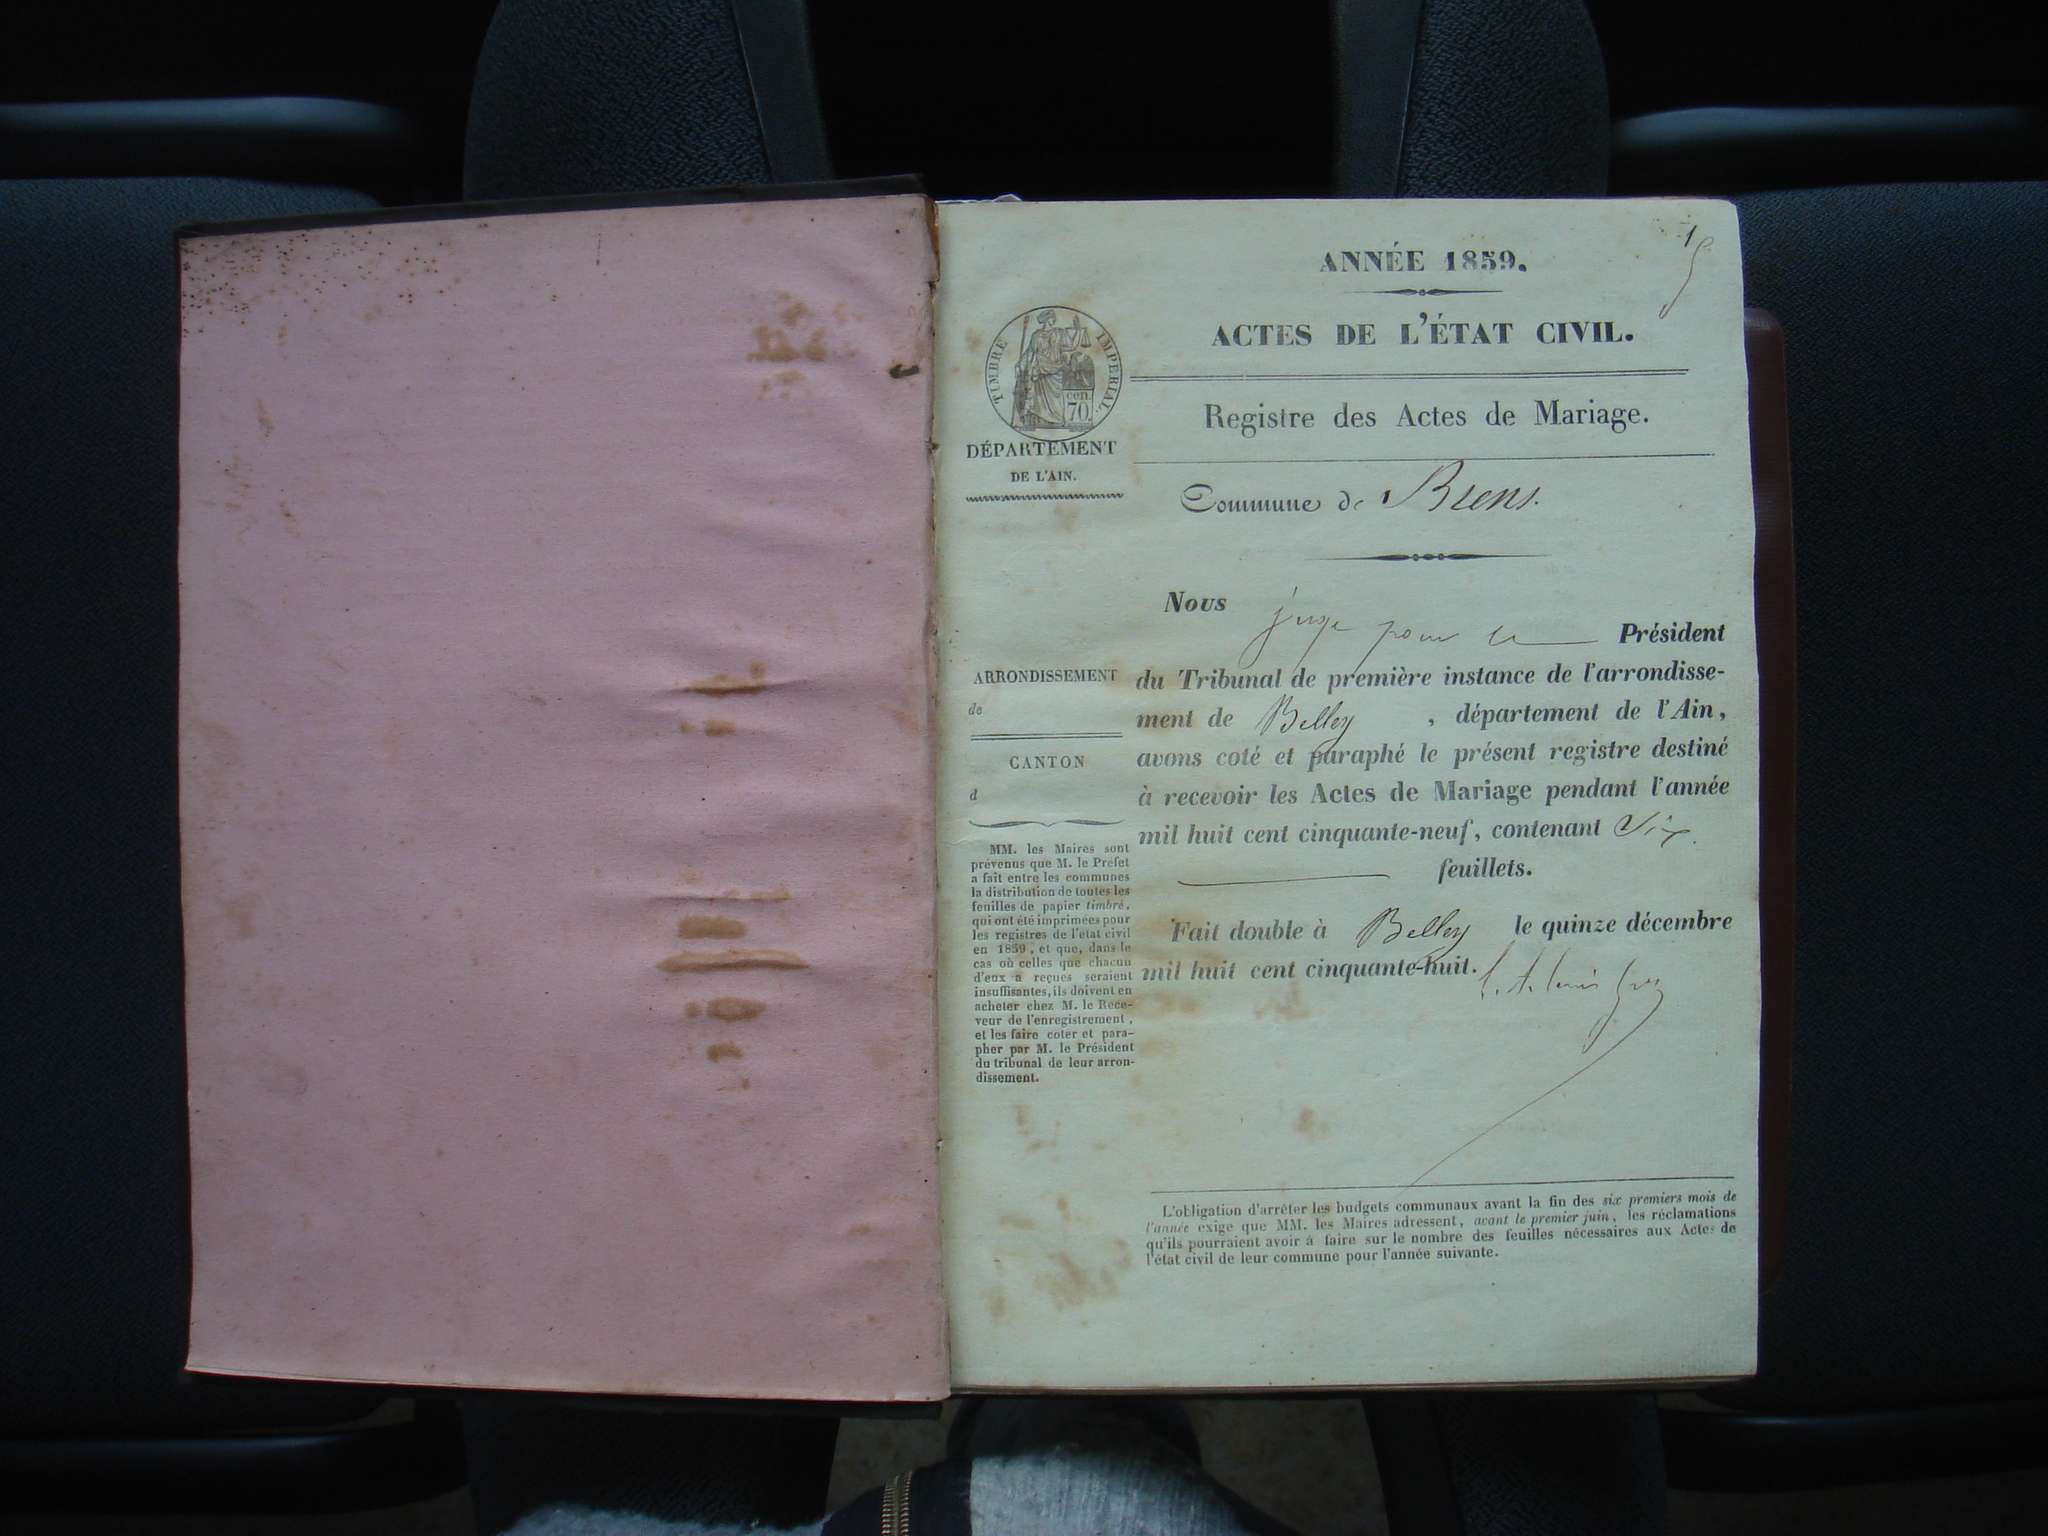 1
ANNÉE 1859.
ACTES DE L'ÉTAT CIVIL.
Registre des Actes de Mariage.
Commune de Brens.
TIMBRE IMPERIAL.
cen.
70
DÉPARTEMENT
DE L'AIN.
ARRONDISSEMENT
de
CANTON
d
MM. les Maires sont
prévenus que M. le Préfet
a fait entre les communes
la distribution de toutes les
feuilles de papier timbré,
qui ont été imprimées pour
les registres de l'état civil
en 1859, et que, dans le
cas où celles que chacun
d'eux a reçues seraient
insuffisantes, ils doivent en
acheter chez M. le Rece-
veur de l'enregistrement,
et les faire coter et para-
pher par M. le Président
du tribunal de leur arron-
dissement.
Nous juge pour le Président
du Tribunal de première instance de l'arrondisse-
ment de Belley, département de l'Ain,
avons coté et paraphé le présent registre destiné
à recevoir les Actes de Mariage pendant l'année
mil huit cent cinquante-neuf, contenant Six
feuillets.
Fait double à Belley le quinze décembre
mil huit cent cinquante-huit.
L'obligation d'arrêter les budgets communaux avant la fin des six premiers mois de
l'année exige que MM. les Maires adressent, avant le premier juin, les réclamations
qu'ils pourraient avoir à faire sur le nombre des feuilles nécessaires aux Actes de
l'état civil de leur commune pour l'année suivante.